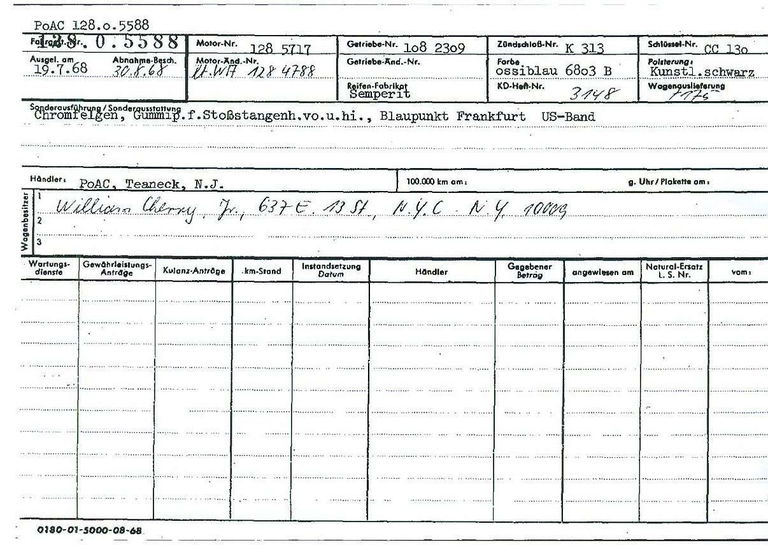 PoAC 128.o.5588
Fahrgst.-Nr. 128.0.5588 Motor-Nr. 128 5717 Getriebe-Nr. 1o8 23o9 Zündschloß-Nr. K 313 Schlüssel-Nr. CC 13o
Ausgel. am Abnahme-Besch. Motor-Änd.-Nr. Getriebe-Änd.-Nr. Farbe Polsterung:
19.7.68 30.8.68 lt. WA 128 4788 ossiblau 68o3 B Kunstl.schwarz
Reifen-Fabrikat KD-Heft-Nr. 3148 Wagenauslieferung
Semperit 1175
Sonderausführung / Sonderausstattung
Chromfelgen, Gummip.f.Stoßstangenh.vo.u.hi., Blaupunkt Frankfurt US-Band
Händler: PoAC, Teaneck, N.J. 100.000 km am: g. Uhr / Plakette am:
Wagenbesitzer
1 William Cherry, Jr., 637 E. 13 St., N.Y.C. N.Y. 10009
2
3
Wartungs-dienste Gewährleistungs-Anträge Kulanz-Anträge km-Stand Instandsetzung Datum Händler Gegebener Betrag angewiesen am Natural-Ersatz L. S. Nr. vom:
0180-01-5000-08-68